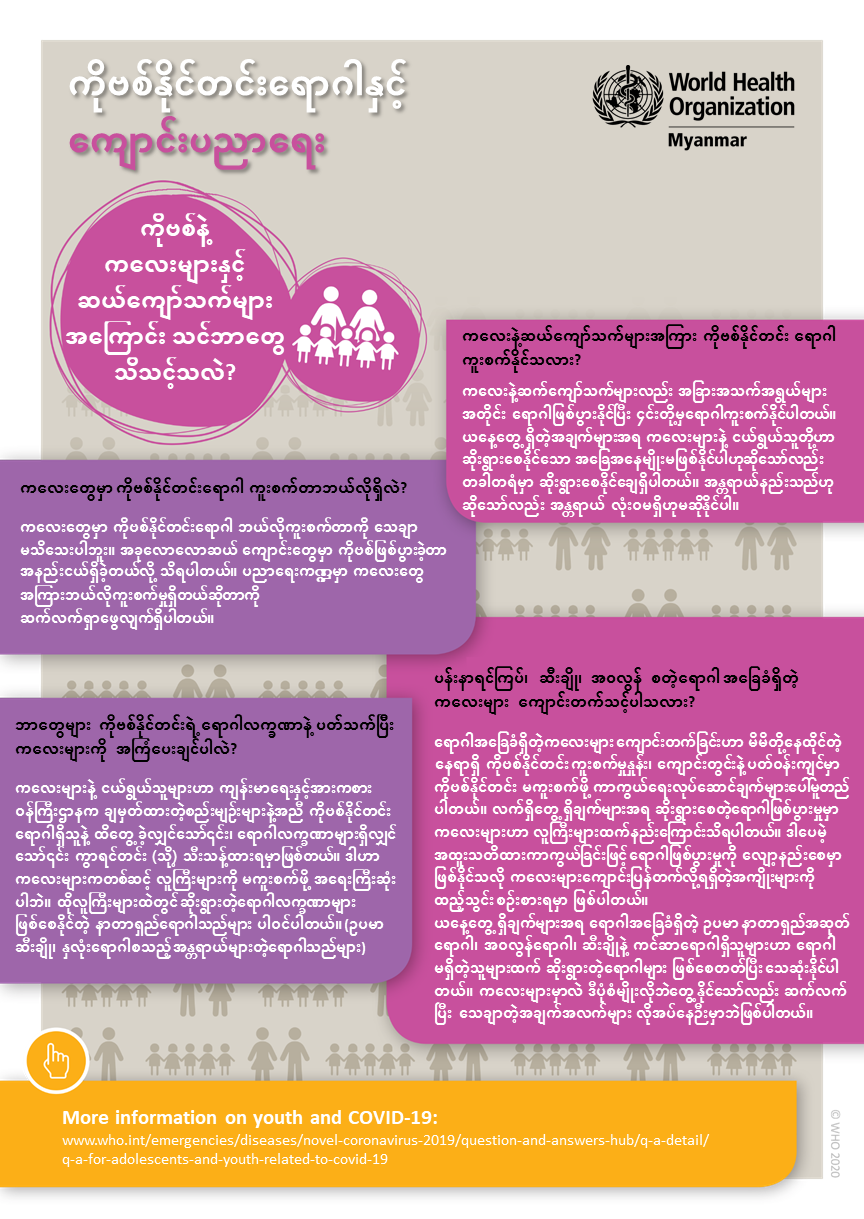 ကိုဗစ်နိုင်တင်းရောဂါနှင့်
ကျောင်းပညာရေး
World Health
Organization
Myanmar
ကိုဗစ်နဲ့
ကလေးများနှင့်
ဆယ်ကျော်သက်များ
အကြောင်း သင်ဘာတွေ
သိသင့်သလဲ?
ကလေးနဲ့ဆယ်ကျော်သက်များအကြား ကိုဗစ်နိုင်တင်း ရောဂါ
ကူးစက်နိုင်သလား?
ကလေးနဲ့ဆက်ကျော်သက်များလည်း အခြားအသက်အရွယ်များ
အတိုင်း ရောဂါဖြစ်ပွားနိုင်ပြီး ၄င်းတို့မှရောဂါကူးစက်နိုင်ပါတယ်။
ယနေ့တွေ့ရှိတဲ့အချက်များအရ ကလေးများနဲ့ ငယ်ရွယ်သူတို့ဟာ
ဆိုးရွားစေနိုင်သော အခြေအနေမျိုးမဖြစ်နိုင်ပါဟုဆိုသော်လည်း
တခါတရံမှာ ဆိုးရွားစေနိုင်ချေရှိပါတယ်။ အန္တရာယ်နည်းသည်ဟု
ဆိုသော်လည်း အန္တရာယ် လုံးဝမရှိဟုမဆိုနိုင်ပါ။
ကလေးတွေမှာ ကိုဗစ်နိုင်တင်းရောဂါ ကူးစက်တာဘယ်လိုရှိလဲ?
ကလေးတွေမှာ ကိုဗစ်နိုင်တင်းရောဂါ ဘယ်လိုကူးစက်တာကို သေချာ
မသိသေးပါဘူး။ အခုလောလောဆယ် ကျောင်းတွေမှာ ကိုဗစ်ဖြစ်ပွားခဲ့တာ
အနည်းငယ်ရှိခဲ့တယ်လို့ သိရပါတယ်။ ပညာရေးကဏ္ဍမှာ ကလေးတွေ
အကြားဘယ်လိုကူးစက်မှုရှိတယ်ဆိုတာကို
ဆက်လက်ရှာဖွေလျက်ရှိပါတယ်။
ပန်းနာရင်ကြပ်၊ ဆီးချို၊ အဝလွန် စတဲ့ရောဂါအခြေခံရှိတဲ့
ကလေးများ ကျောင်းတက်သင့်ပါသလား?
ရောဂါအခြေခံရှိတဲ့ကလေးများကျောင်းတက်ခြင်းဟာ မိမိတို့နေထိုင်တဲ့
နေရာရှိ ကိုဗစ်နိုင်တင်းကူးစက်မှုနှုန်း၊ ကျောင်းတွင်းနဲ့ပတ်ဝန်းကျင်မှာ
ကိုဗစ်နိုင်တင်း မကူးစက်ဖို့ကာကွယ်ရေးလုပ်ဆောင်ချက်များပေါ်မူတည်
ပါတယ်။ လက်ရှိတွေ့ရှိချက်များအရ ဆိုးရွားစေတဲ့ရောဂါဖြစ်ပွားမှုမှာ
ကလေးများဟာ လူကြီးများထက်နည်းကြောင်းသိရပါတယ်။ ဒါပေမဲ့
အထူးသတိထားကာကွယ်ခြင်းဖြင့်ရောဂါဖြစ်ပွားမှုကို လျော့နည်းစေမှာ
ဖြစ်နိုင်သလို ကလေးများကျောင်းပြန်တက်လို့ရရှိတဲ့အကျိုးများကို
ထည့်သွင်းစဉ်းစားရမှာ ဖြစ်ပါတယ်။
ယနေ့တွေ့ရှိချက်များအရ ရောဂါအခြေခံရှိတဲ့ ဥပမာနာတာရှည်အဆုတ်
ရောဂါ၊ အဝလွန်ရောဂါ၊ ဆီးချိုနဲ့ ကင်ဆာရောဂါရှိသူများဟာ ရောဂါ
မရှိတဲ့သူများထက် ဆိုးရွားတဲ့ရောဂါများ ဖြစ်စေတတ်ပြီးသေဆုံးနိုင်ပါ
တယ်။ ကလေးများမှာလဲ ဒီပုံစံမျိုးလိုဘဲတွေ့နိုင်သော်လည်း ဆက်လက်
ပြီး သေချာတဲ့အချက်အလက်များ လိုအပ်နေဦးမှာဘဲဖြစ်ပါတယ်။
ဘာတွေများ ကိုဗစ်နိုင်တင်းရဲ့ရောဂါလက္ခဏာနဲ့ပတ်သက်ပြီး
ကလေးများကို အကြံပေးချင်ပါလဲ?
ကလေးများနဲ့ ငယ်ရွယ်သူများဟာ ကျန်းမာရေးနှင့်အားကစား
ဝန်ကြီးဌာနက ချမှတ်ထားတဲ့စည်းမျဉ်းများနဲ့အညီ ကိုဗစ်နိုင်တင်း
ရောဂါရှိသူနဲ့ ထိတွေ့ခဲ့လျှင်သော်၎င်း၊ ရောဂါလက္ခဏာများရှိလျှင်
သော်၎င်း ကွာရင်တင်း (သို့) သီးသန့်ထားရမှာဖြစ်တယ်။ ဒါဟာ
ကလေးများကတစ်ဆင့် လူကြီးများကို မကူးစက်ဖို့ အရေးကြီးဆုံး
ပါဘဲ။ ထိုလူကြီးများထဲတွင်ဆိုးရွားတဲ့ရောဂါလက္ခဏာများ
ဖြစ်စေနိုင်တဲ့ နာတာရှည်ရောဂါသည်များ ပါဝင်ပါတယ်။(ဥပမာ
ဆီးချို၊ နှလုံးရောဂါစသည့်အန္တရာယ်များတဲ့ရောဂါသည်များ)
More information on youth and COVID-19:
www.who.int/emergencies/diseases/novel-coronavirus-2019/question-and-answers-hub/q-a-detail/
q-a-for-adolescents-and-youth-related-to-covid-19
© WHO 2020